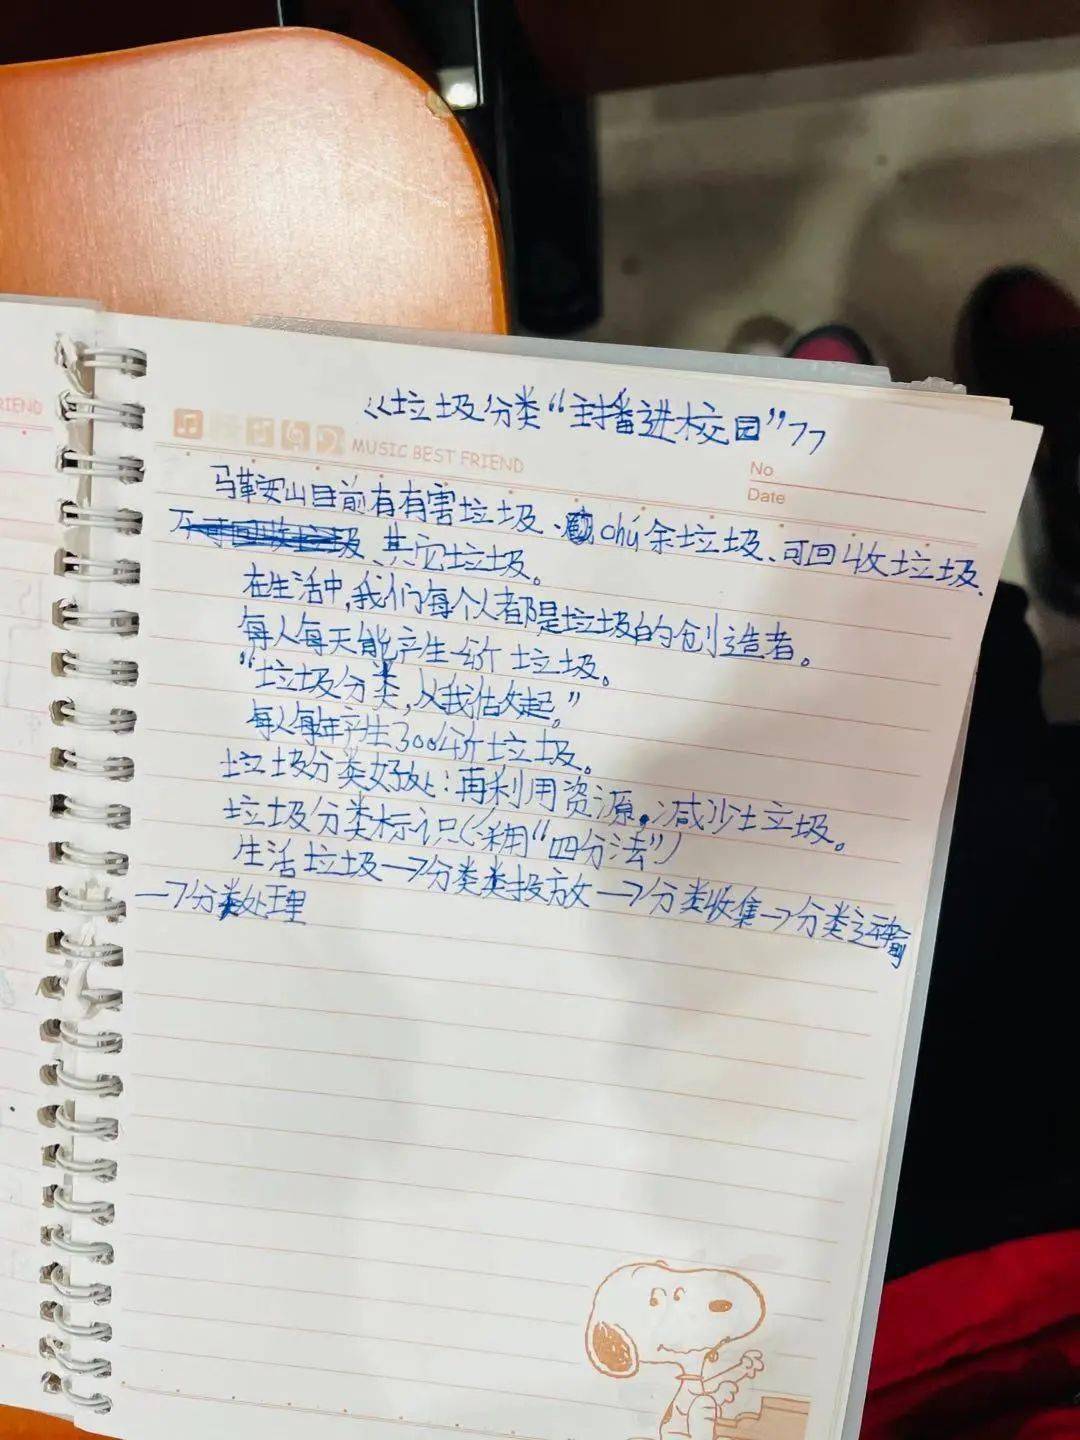 《垃圾分类“主播进校园”》
MUSIC BEST FRIEND
No
Date
RIEND
马鞍山目前有有害垃圾、chú余垃圾、可回收垃圾、
其它垃圾。
在生活中,我们每个人都是垃圾的创造者。
每人每天能产生一斤垃圾。
“垃圾分类,从我做起。”
每人每年产生300斤垃圾。
垃圾分类好处:再利用资源,减少垃圾。
垃圾分类标识(采用“四分法”)
生活垃圾→分类类投放→分类收集→分类运输
→分类处理